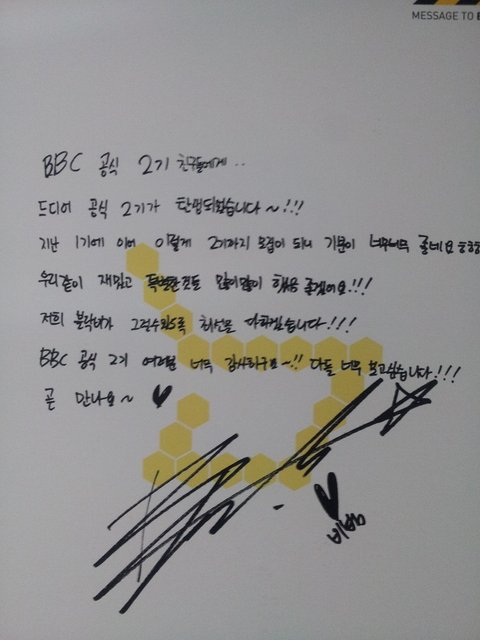 MESSAGE TO B
BBC 공식 2기 친구들에게..
드디어 공식 2기가 탄생되었습니다~!!!
지난 1기에 이어 이렇게 2기까지 모집이 되니 기분이 너무너무 좋네요
우리같이 재밌고 특별한것들 많이많이 했음 좋겠어요!!!
저희 블락비가 그럴수록 최선을 다하겠습니다!!!
BBC 공식 2기 여러분 너무 감사하구요~!! 다들 너무 보고싶습니다!!!
곧 만나요~ ♥
비범